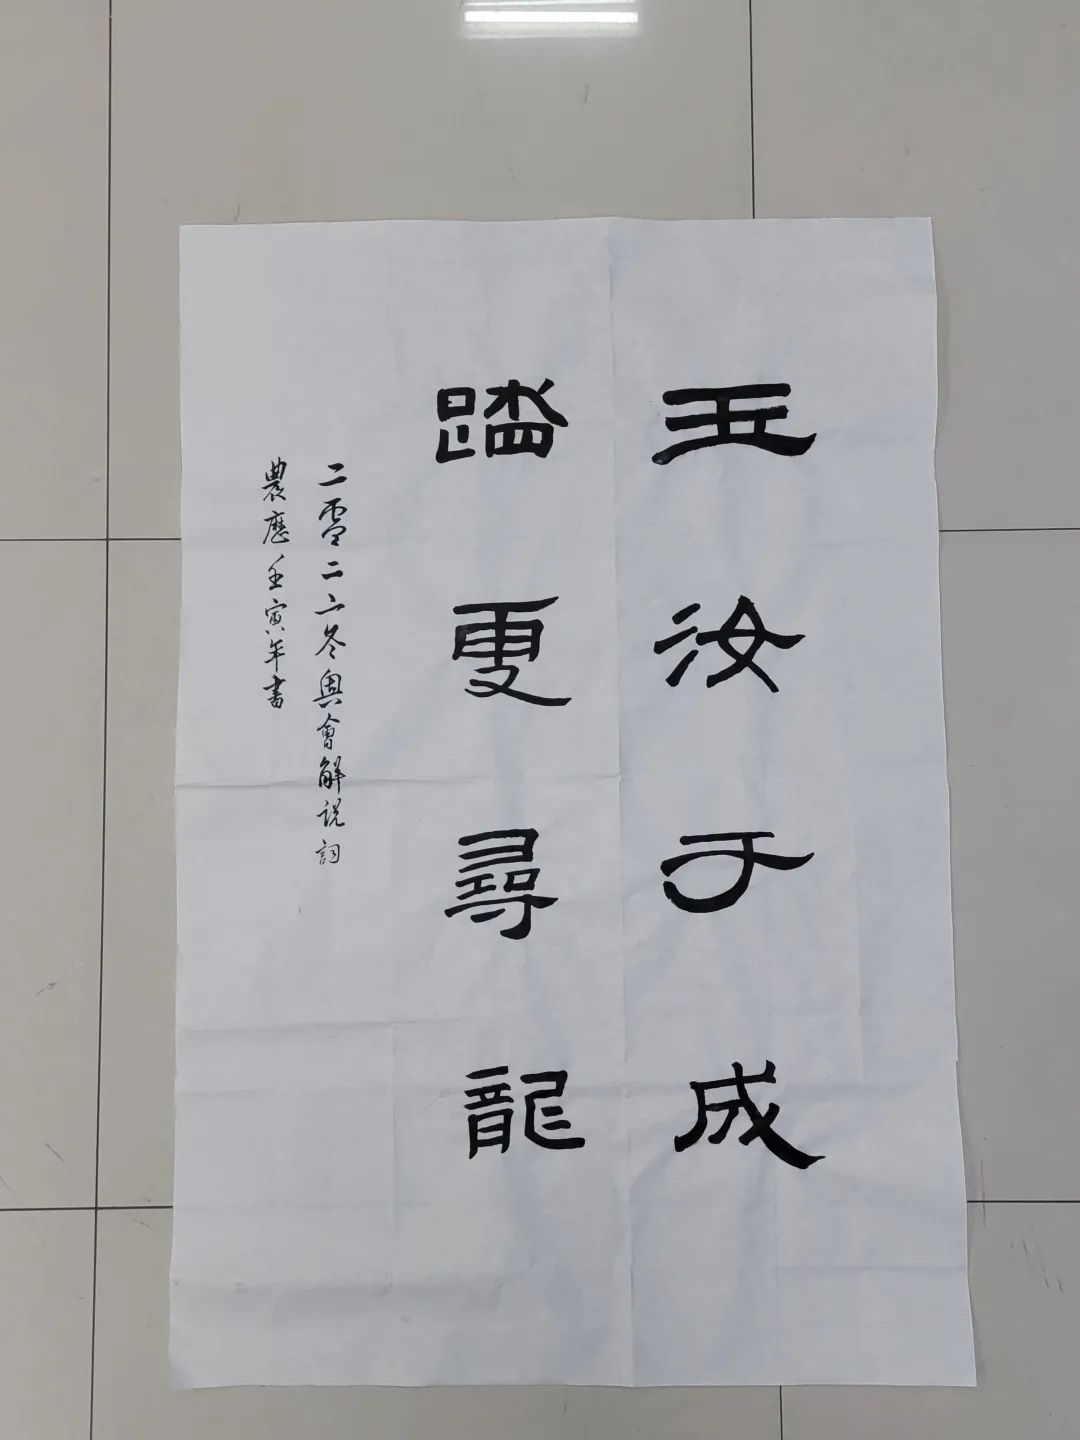 玉汝于成
踏更尋龍
二零二二冬奥會解说詞
農歷壬寅年書